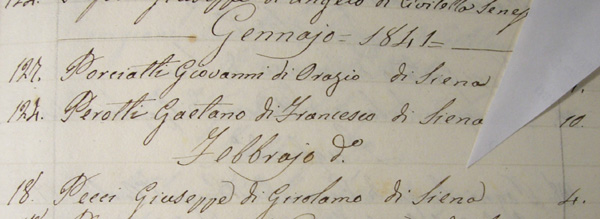 Giuseppe di Angelo di Civitella
Gennajo = 1841 =
Porciatti Giovanni di Orazio di Siena
124. Perotti Gaetano di Francesco di Siena 10.
Febbrajo d.º
18. Pecci Giuseppe di Girolamo di Siena 4.